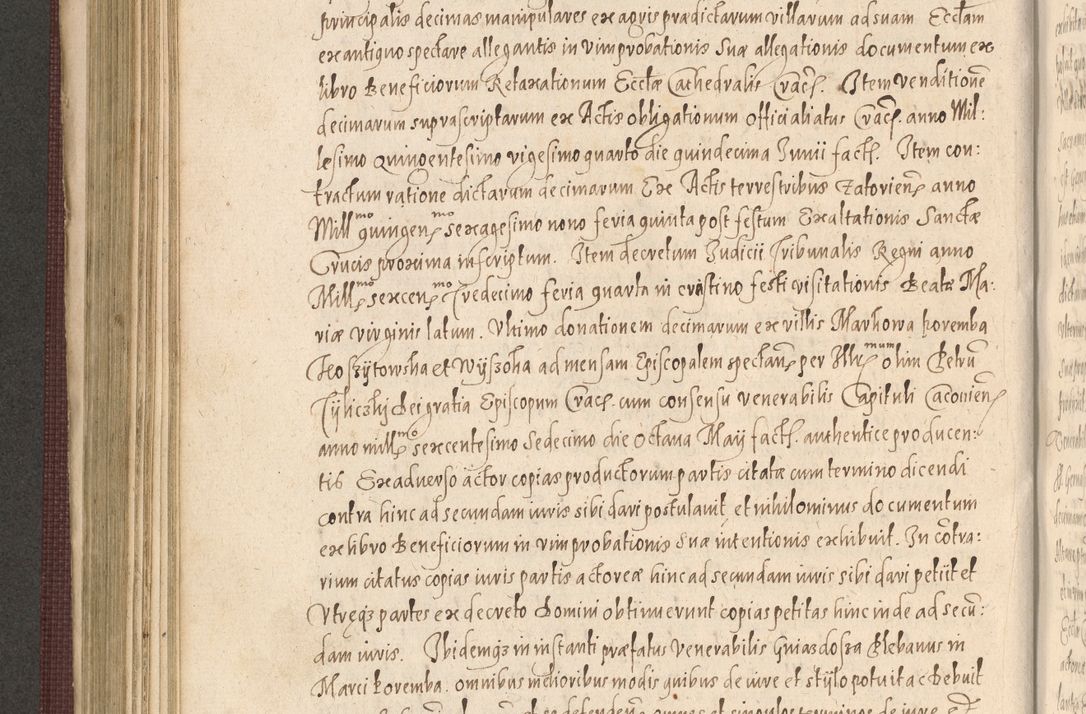 principalis decimas manipulares ex agris prædictarum villarum ad suam Ecclam
ex antiquo spectare allegantis in vim probationis suæ allegationis documentum ex
libro Beneficiorum Retaxationum Ecclæ Cathedralis Crac. Item venditionē
decimarum suprascriptarum ex Actis obligationum officialiatus Crac. anno Mil:
lesimo Quingentesimo vigesimo quarto die quindecima Junii fact. Item con:
tractum ratione dictarum decimarum Ex Actis terrestribus Zatorien. anno
Mill.mo quingen.mo sexagesimo nono feria quinta post festum Exaltationis Sanctæ
Crucis proxima inscriptum. Item decretum Judicii Tribunalis Regni anno
Mill.mo sexcen.mo Tredecimo feria quarta in crastino festi visitationis Beatæ Ma:
riæ virginis latum. Ultimo donationem decimarum ex villis Markowa Poremba
Koszytowska et Wyszoka ad mensam Episcopalem spectan. per Illr.mum olim Petrū
Tyliczkj dei gratia Episcopum Crac. cum consensu venerabilis Capituli Cacovien.
anno mill.mo sexcentesimo sedecimo die octava Maij fact. authentice producen:
tis Ex adverso actor copias productorum partis citatæ cum termino dicendi
contra hinc ad secundam iuris sibi dari postulavit et nihilominus documentum
ex libro Beneficiorum in vim probationis suæ intentionis exhibuit. In cōtra:
rium citatus copias iuris partis actoreæ hinc ad secundam iuris sibi dari petiit et
Utręqz partes ex decreto Domini obtinuerunt copias petitas hinc inde ad secū:
dam iuris. Ibidemqz in instanti præfatus venerabilis Gniazdoska Plebanus in
Marci Poremba. omnibus melioribus modis quibus de iure et stylo potuit ac debuit